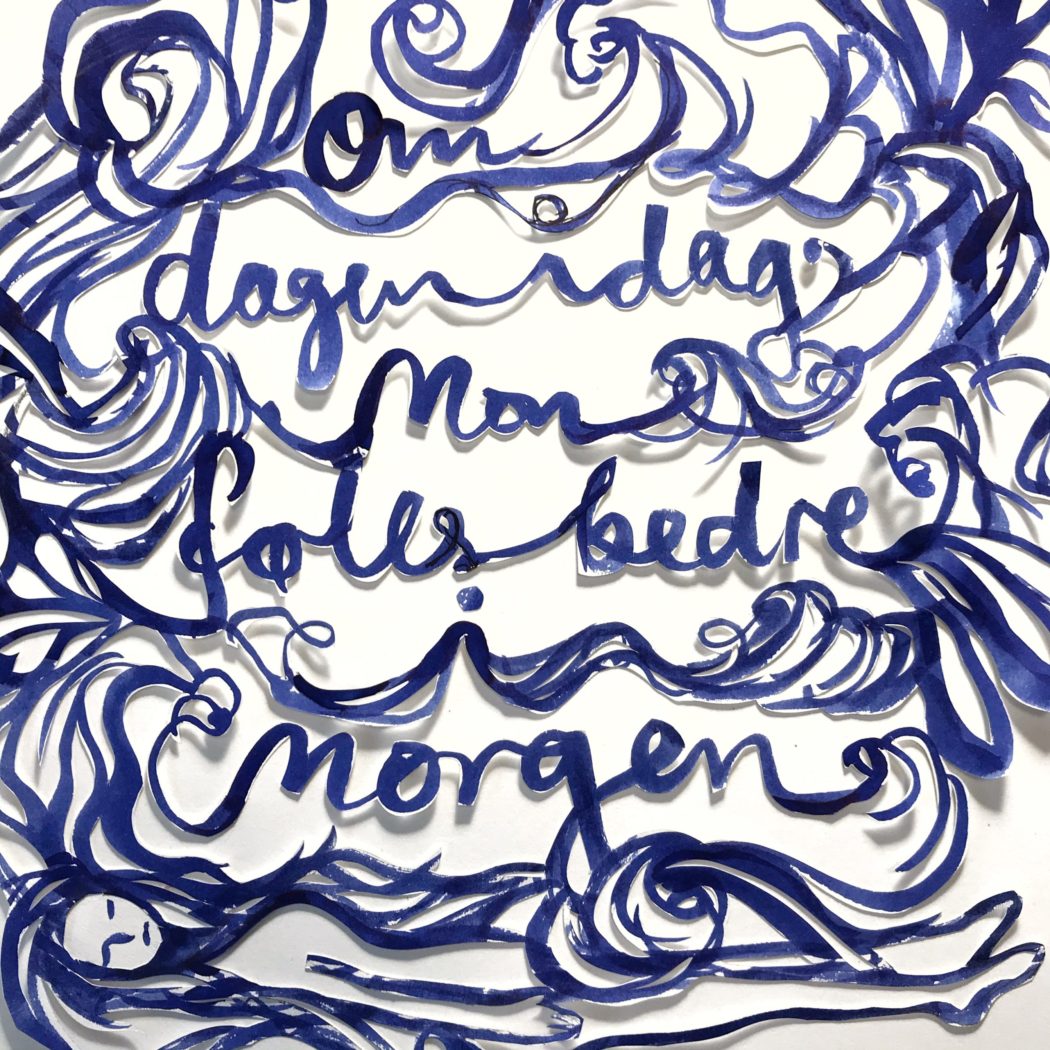 Om
dagen i dag,
Mon
føles bedre
i
morgen